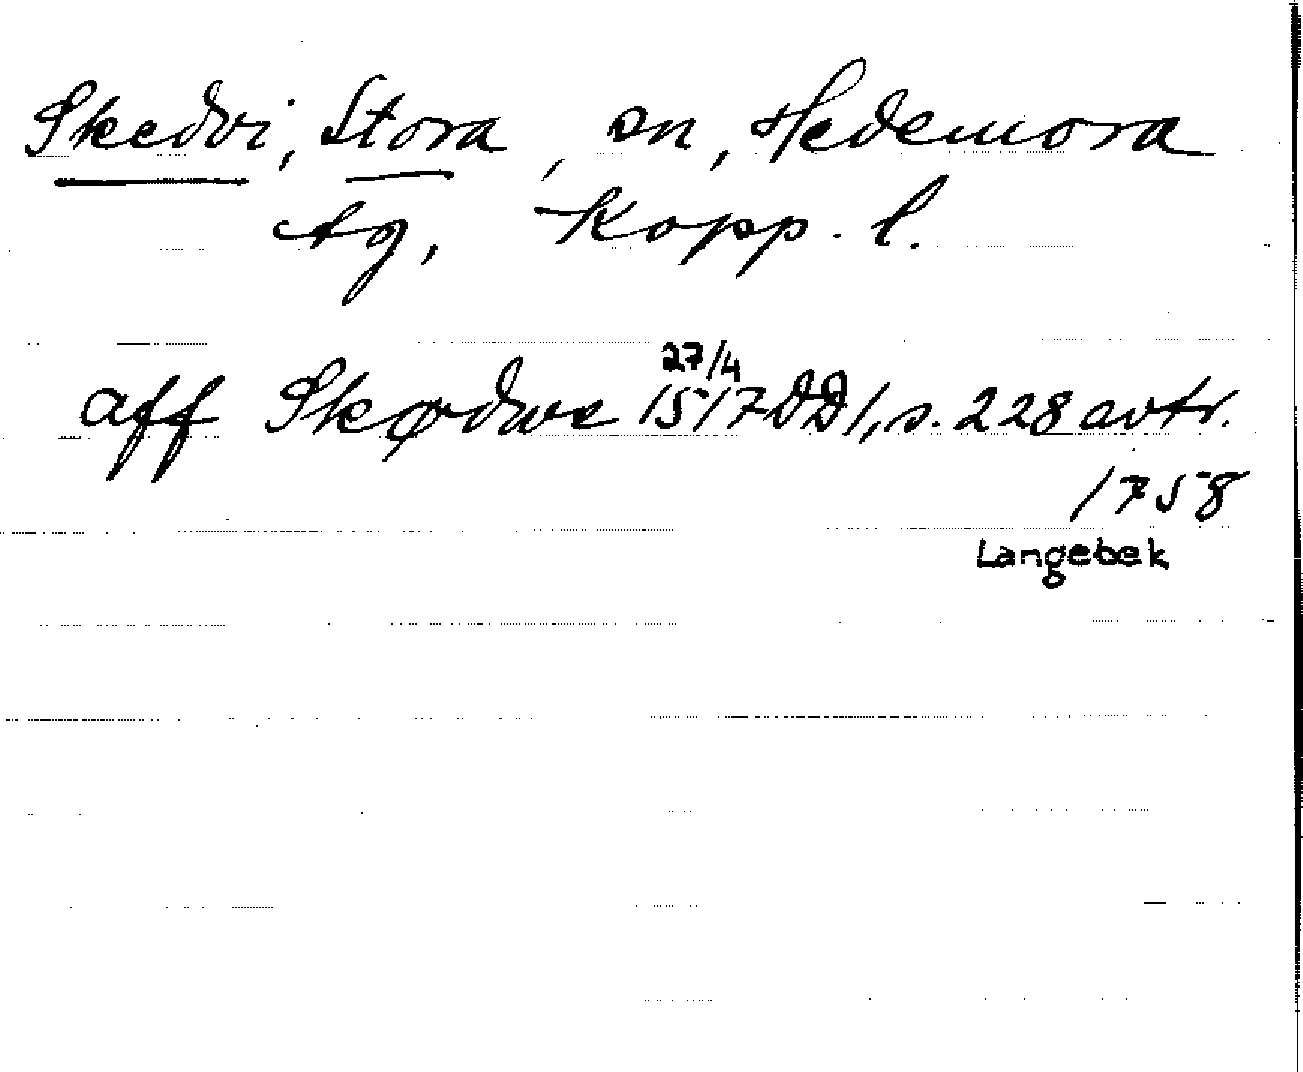 Skedvi, Stora, sn, Hedemora
tg, Kopp. l.
aff Skødwe 27/4 1517 DD1, s. 228 avtr.
1758
Langebek